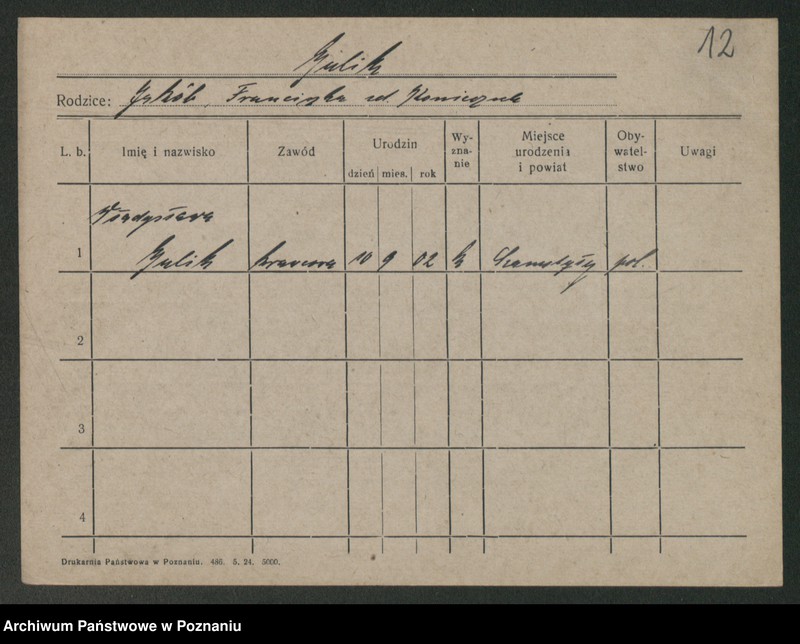 12
Gulik
Rodzice: Jakób, Franciszka zd. Konieczna
L. b. Imię i nazwisko Zawód Urodzin dzień mies. rok Wy-zna-nie Miejsce urodzenia i powiat Oby-watel-stwo Uwagi
Władysława
1 Gulik krawcowa 10 9 02 k Szamotuły pol.
2
3
4
Drukarnia Państwowa w Poznaniu. 486. 5. 24. 5000.
Archiwum Państwowe w Poznaniu